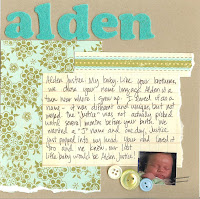 alden
Alden Justice: My baby. Like your brothers,
we chose your name long ago. Alden is a
town near where I grew up. I loved it as a
name - it was different and unique, but not
weird. The "Justice" was not actually picked
until several months before your birth. We
wanted a "J" name and one day, Justice
just popped into my head. Your dad loved it
too and we knew our last
little baby would be Alden Justice!